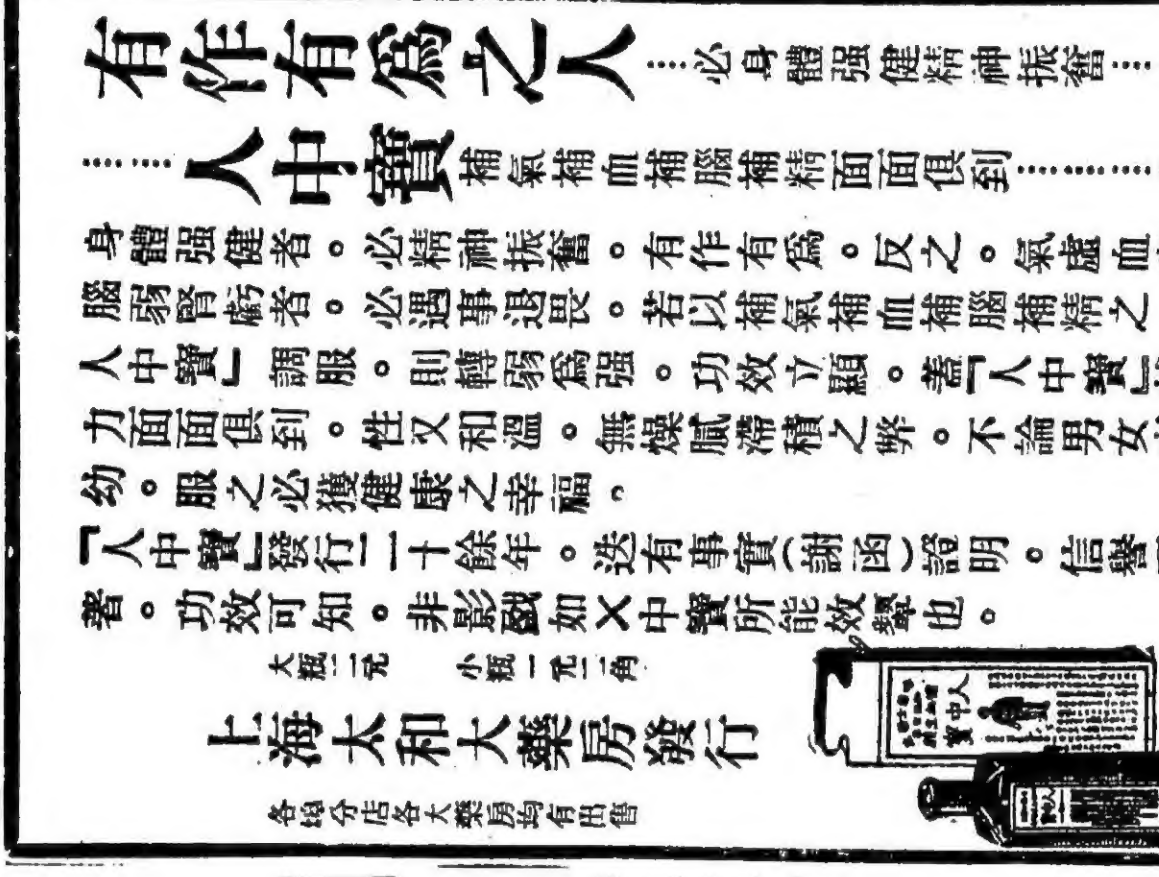 有作有爲之人……必身體强健精神振奮……
……人中寶補氣補血補腦補精面面俱到……
身體强健者。必精神振奮。有作有爲。反之。氣虛血
腦弱腎虧者。必遇事退畏。若以補氣補血補腦補精之
人中寶』調服。則轉弱爲强。功效立顯。蓋『人中寶』
力面面俱到。性又和溫。無燥膩滯積之弊。不論男女
幼。服之必獲健康之幸福。
『人中寶』發行二十餘年。迭有事實(謝函)證明。信譽
著。功效可知。非影戤如×中寶所能效顰也。
大瓶二元 小瓶一元二角
上海太和大藥房發行
各埠分店各大藥房均有出售
人中寶